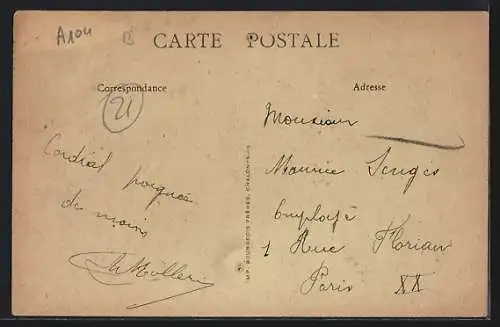 A104
B
CARTE POSTALE
Correspondance
Adresse
21
Cordial poignée
de mains
Monsieur
Maurice
Employé
1 Rue Florian
Paris XX
IMP. BOURGEOIS FRÈRES, CHALON-S-S